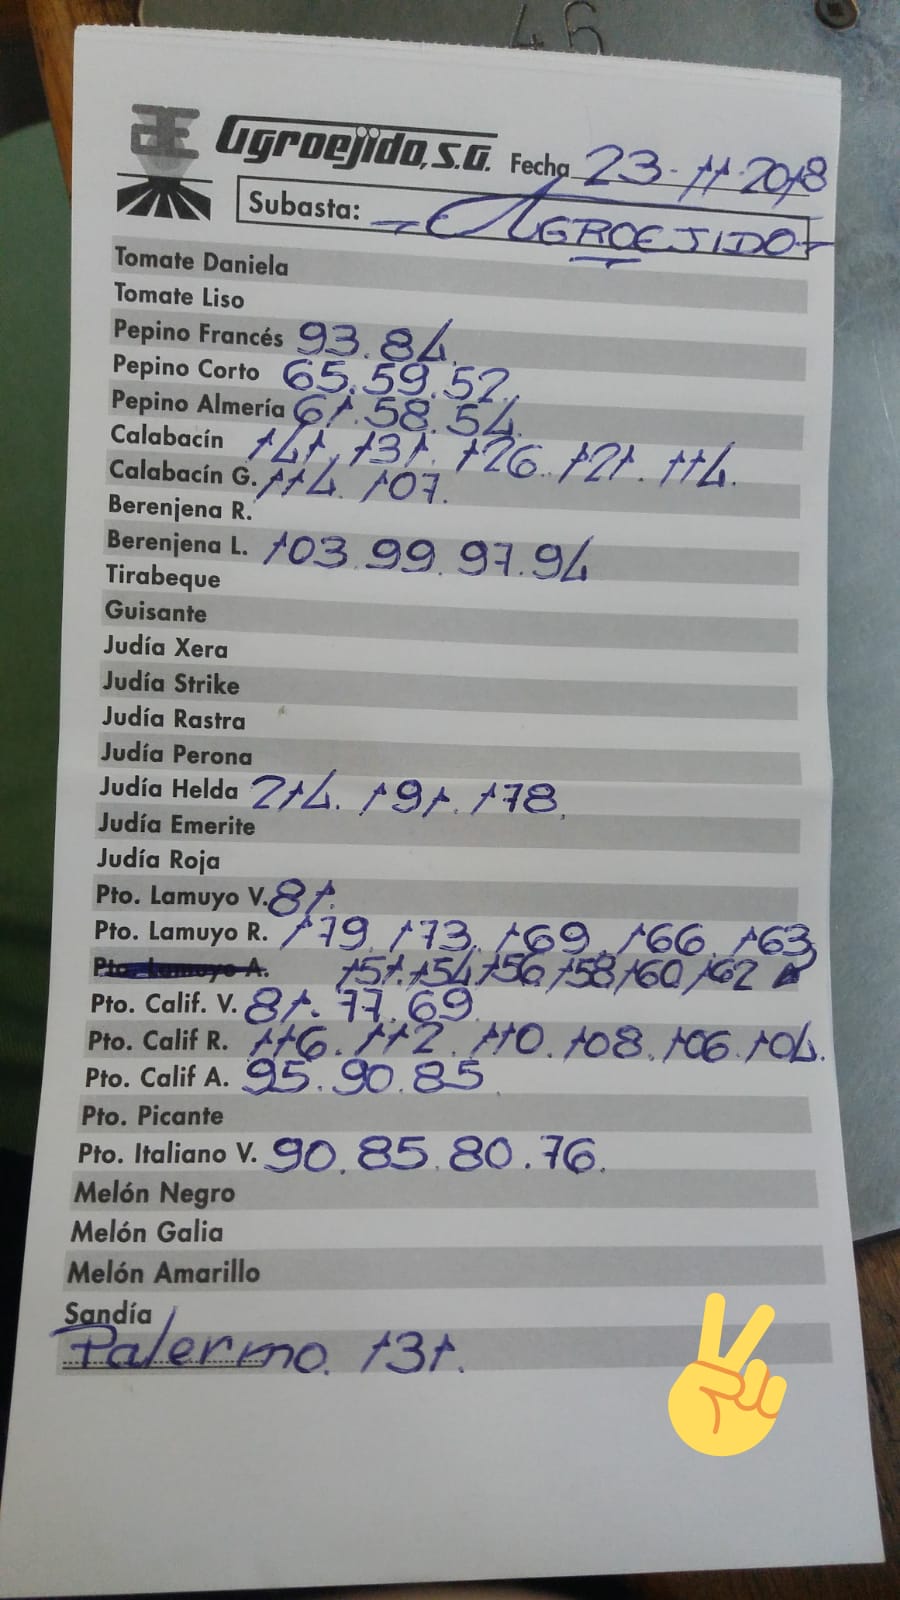 46
AE Agroejido, S.A. Fecha 23-11-2018
Subasta: - AGROEJIDO -
Tomate Daniela
Tomate Liso
Pepino Francés 93.84.
Pepino Corto 65.59.52.
Pepino Almería 61.58.54.
Calabacín 141.131.126.121.114.
Calabacín G. 114.107.
Berenjena R.
Berenjena L. 103.99.97.94
Tirabeque
Guisante
Judía Xera
Judía Strike
Judía Rastra
Judía Perona
Judía Helda 214.191.178.
Judía Emerite
Judía Roja
Pto. Lamuyo V. 81.
Pto. Lamuyo R. 179.173.169.166.163
Pto. Lamuyo A. 151.154/156/158/160/162
Pto. Calif. V. 81.77.69.
Pto. Calif R. 116.112.110.108.106.104.
Pto. Calif A. 95.90.85.
Pto. Picante
Pto. Italiano V. 90.85.80.76.
Melón Negro
Melón Galia
Melón Amarillo
Sandía
Palermo. 131.